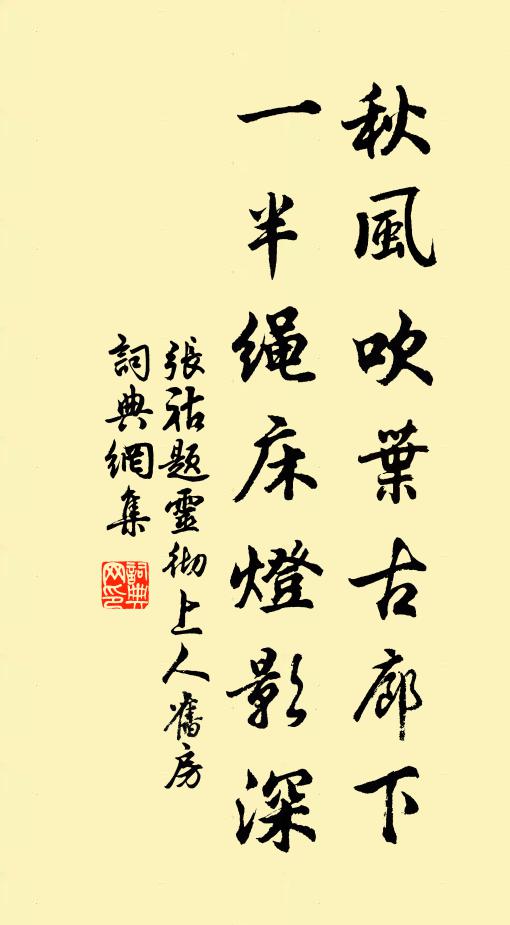 秋風吹葉古廊下
一半绳床燈影深
張祜題靈彻上人舊房
詞典網集
詞典网印